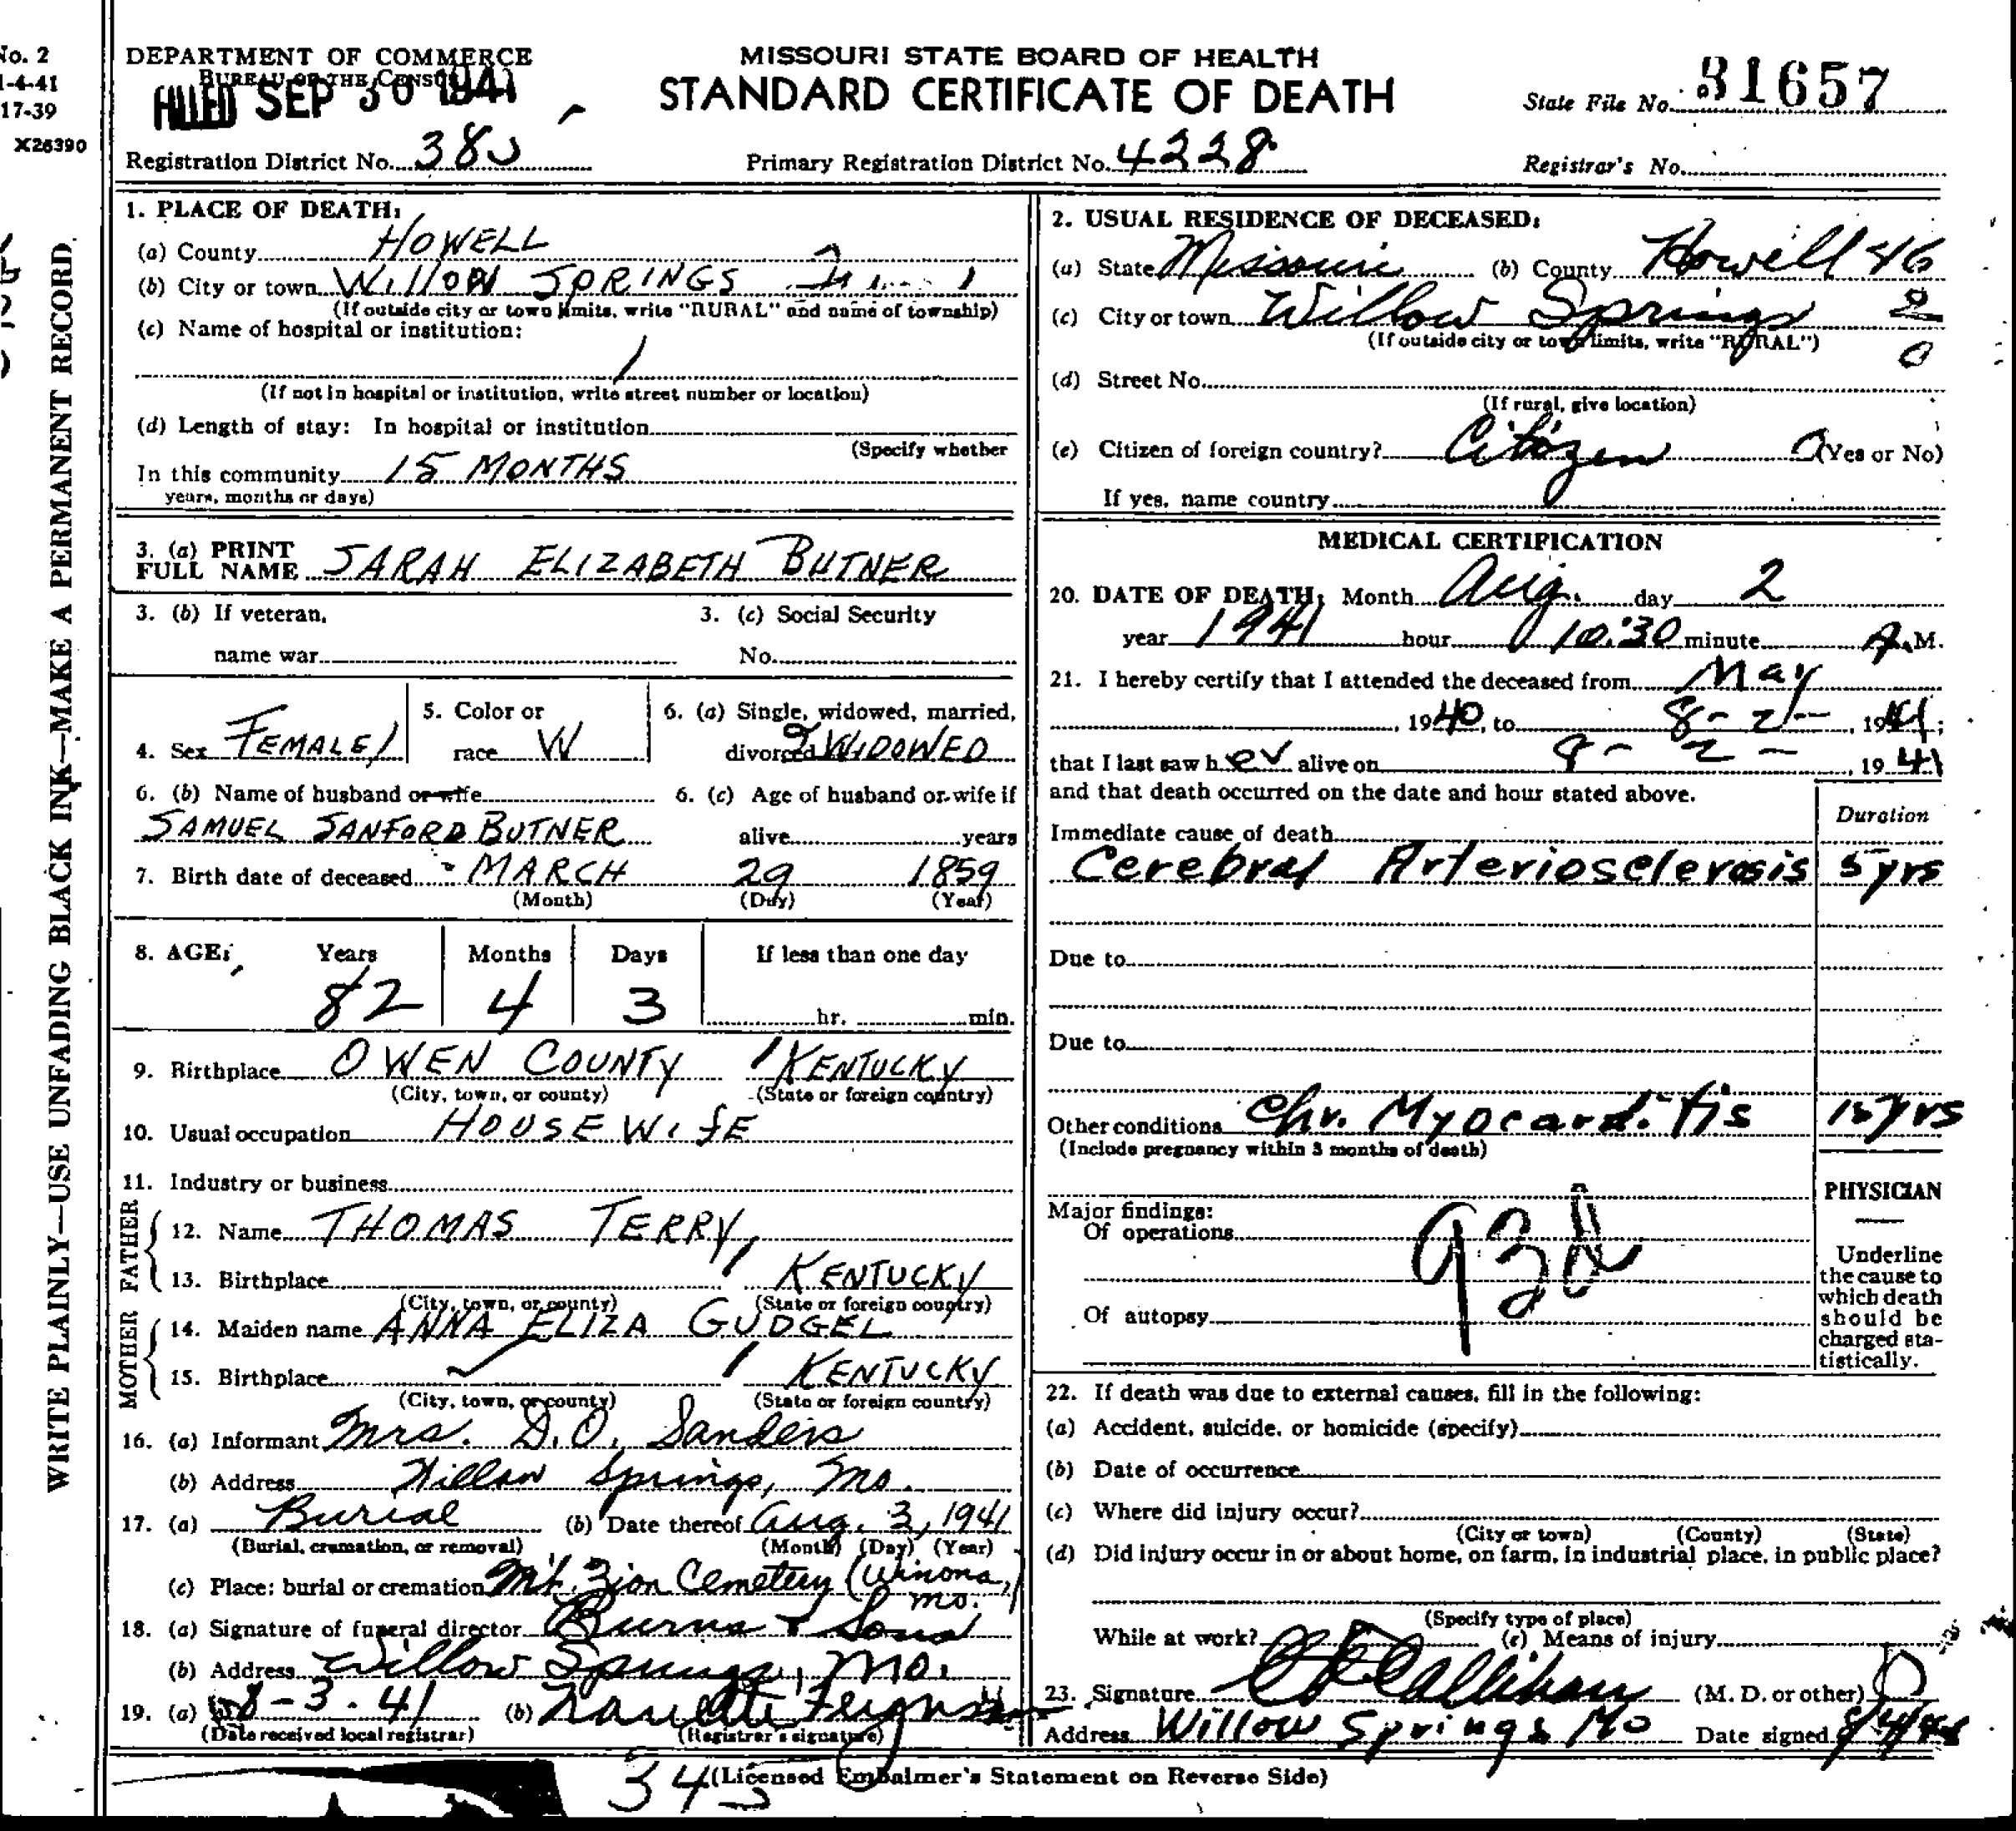 No. 2
1-4-41
17-39
X26390
WRITE PLAINLY—USE UNFADING BLACK INK—MAKE A PERMANENT RECORD.
DEPARTMENT OF COMMERCE
BUREAU OF THE CENSUS
FILED SEP 30 1941
MISSOURI STATE BOARD OF HEALTH
STANDARD CERTIFICATE OF DEATH
State File No. 31657
Registration District No. 38
Primary Registration District No. 4228
Registrar's No.
1. PLACE OF DEATH:
(a) County HOWELL
(b) City or town WILLOW SPRINGS
(If outside city or town limits, write "RURAL" and name of township)
(c) Name of hospital or institution:
(If not in hospital or institution, write street number or location)
(d) Length of stay: In hospital or institution
(Specify whether
In this community 15 MONTHS
years, months or days)
3. (a) PRINT
FULL NAME SARAH ELIZABETH BUTNER
3. (b) If veteran,
name war
3. (c) Social Security
No.
4. Sex FEMALE
5. Color or
race W
6. (a) Single, widowed, married,
divorced WIDOWED
6. (b) Name of husband or wife
SAMUEL SANFORD BUTNER
6. (c) Age of husband or wife if
alive years
7. Birth date of deceased MARCH 29 1859
(Month) (Day) (Year)
8. AGE: Years Months Days If less than one day
82 4 3 hr. min.
9. Birthplace OWEN COUNTY KENTUCKY
(City, town, or county) (State or foreign country)
10. Usual occupation HOUSEWIFE
11. Industry or business
FATHER
12. Name THOMAS TERRY
13. Birthplace KENTUCKY
(City, town, or county) (State or foreign country)
MOTHER
14. Maiden name ANNA ELIZA GUDGEL
15. Birthplace KENTUCKY
(City, town, or county) (State or foreign country)
16. (a) Informant Mrs. D.O. Sanders
(b) Address Willow Springs, Mo.
17. (a) Burial (b) Date thereof Aug. 3, 1941
(Burial, cremation, or removal) (Month) (Day) (Year)
(c) Place: burial or cremation Mt. Zion Cemetery (Winona,
Mo.
18. (a) Signature of funeral director Burns & Sons
(b) Address Willow Springs, Mo.
19. (a) 8-3-41 (b)
(Date received local registrar) (Registrar's signature)
2. USUAL RESIDENCE OF DECEASED:
(a) State Missouri (b) County Howell 46
(c) City or town Willow Springs 2
(If outside city or town limits, write "RURAL") 0
(d) Street No.
(If rural, give location)
(e) Citizen of foreign country? Citizen (Yes or No)
If yes, name country
MEDICAL CERTIFICATION
20. DATE OF DEATH: Month Aug. day 2
year 1941 hour 10:30 minute A.M.
21. I hereby certify that I attended the deceased from May
, 1940, to 8-2-, 1941;
that I last saw her alive on 8-2-, 1941
and that death occurred on the date and hour stated above.
Duration
Immediate cause of death
Cerebral Arteriosclerosis 5 yrs
Due to
Due to
Other conditions Chr. Myocarditis 15 yrs
(Include pregnancy within 3 months of death)
Major findings:
Of operations
Of autopsy
PHYSICIAN
Underline
the cause to
which death
should be
charged sta-
tistically.
22. If death was due to external causes, fill in the following:
(a) Accident, suicide, or homicide (specify)
(b) Date of occurrence
(c) Where did injury occur?
(City or town) (County) (State)
(d) Did injury occur in or about home, on farm, in industrial place, in public place?
(Specify type of place)
While at work? (e) Means of injury
23. Signature Callihan (M. D. or other)
Address Willow Springs Mo Date signed
345
(Licensed Embalmer's Statement on Reverse Side)